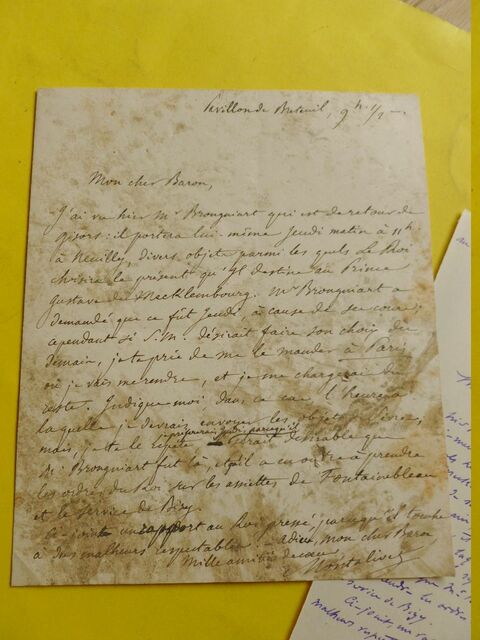 Pavillon de Breteuil, 9h 1/2
Mon cher Baron,
J'ai vu hier Mr Brongniart qui est de retour de
gisors : il portera lui-même Jeudi matin à 11 h.
à Neuilly, divers objets parmi les quels Le Roi
choisira le présent qu'Il destine au Prince
Gustave de Mecklembourg. Mr Brongniart a
demandé que ce fût Jeudi, à cause de ses cours ;
cependant si S. M. désirait faire son choix dès
demain, je te prie de me le mander à Paris
où je vais me rendre, et je me chargerai du
reste. Indique moi dans ce cas l'heure à
laquelle je devrais envoyer les objets
mais, je te le répète
préférerais Jeudi parcequ'il serait désirable que
Mr Brongniart fut là, et qu'il a encore à prendre
les ordres du Roi sur les assiettes de Fontainebleau
et le service de Bizy.
Ci-joint un rapport au Roi pressé, parcequ'il touche
à des malheurs respectables. Adieu, mon cher Baron
Mille amitiés de coeur
Montalivet
Ci-joint, un
malheurs